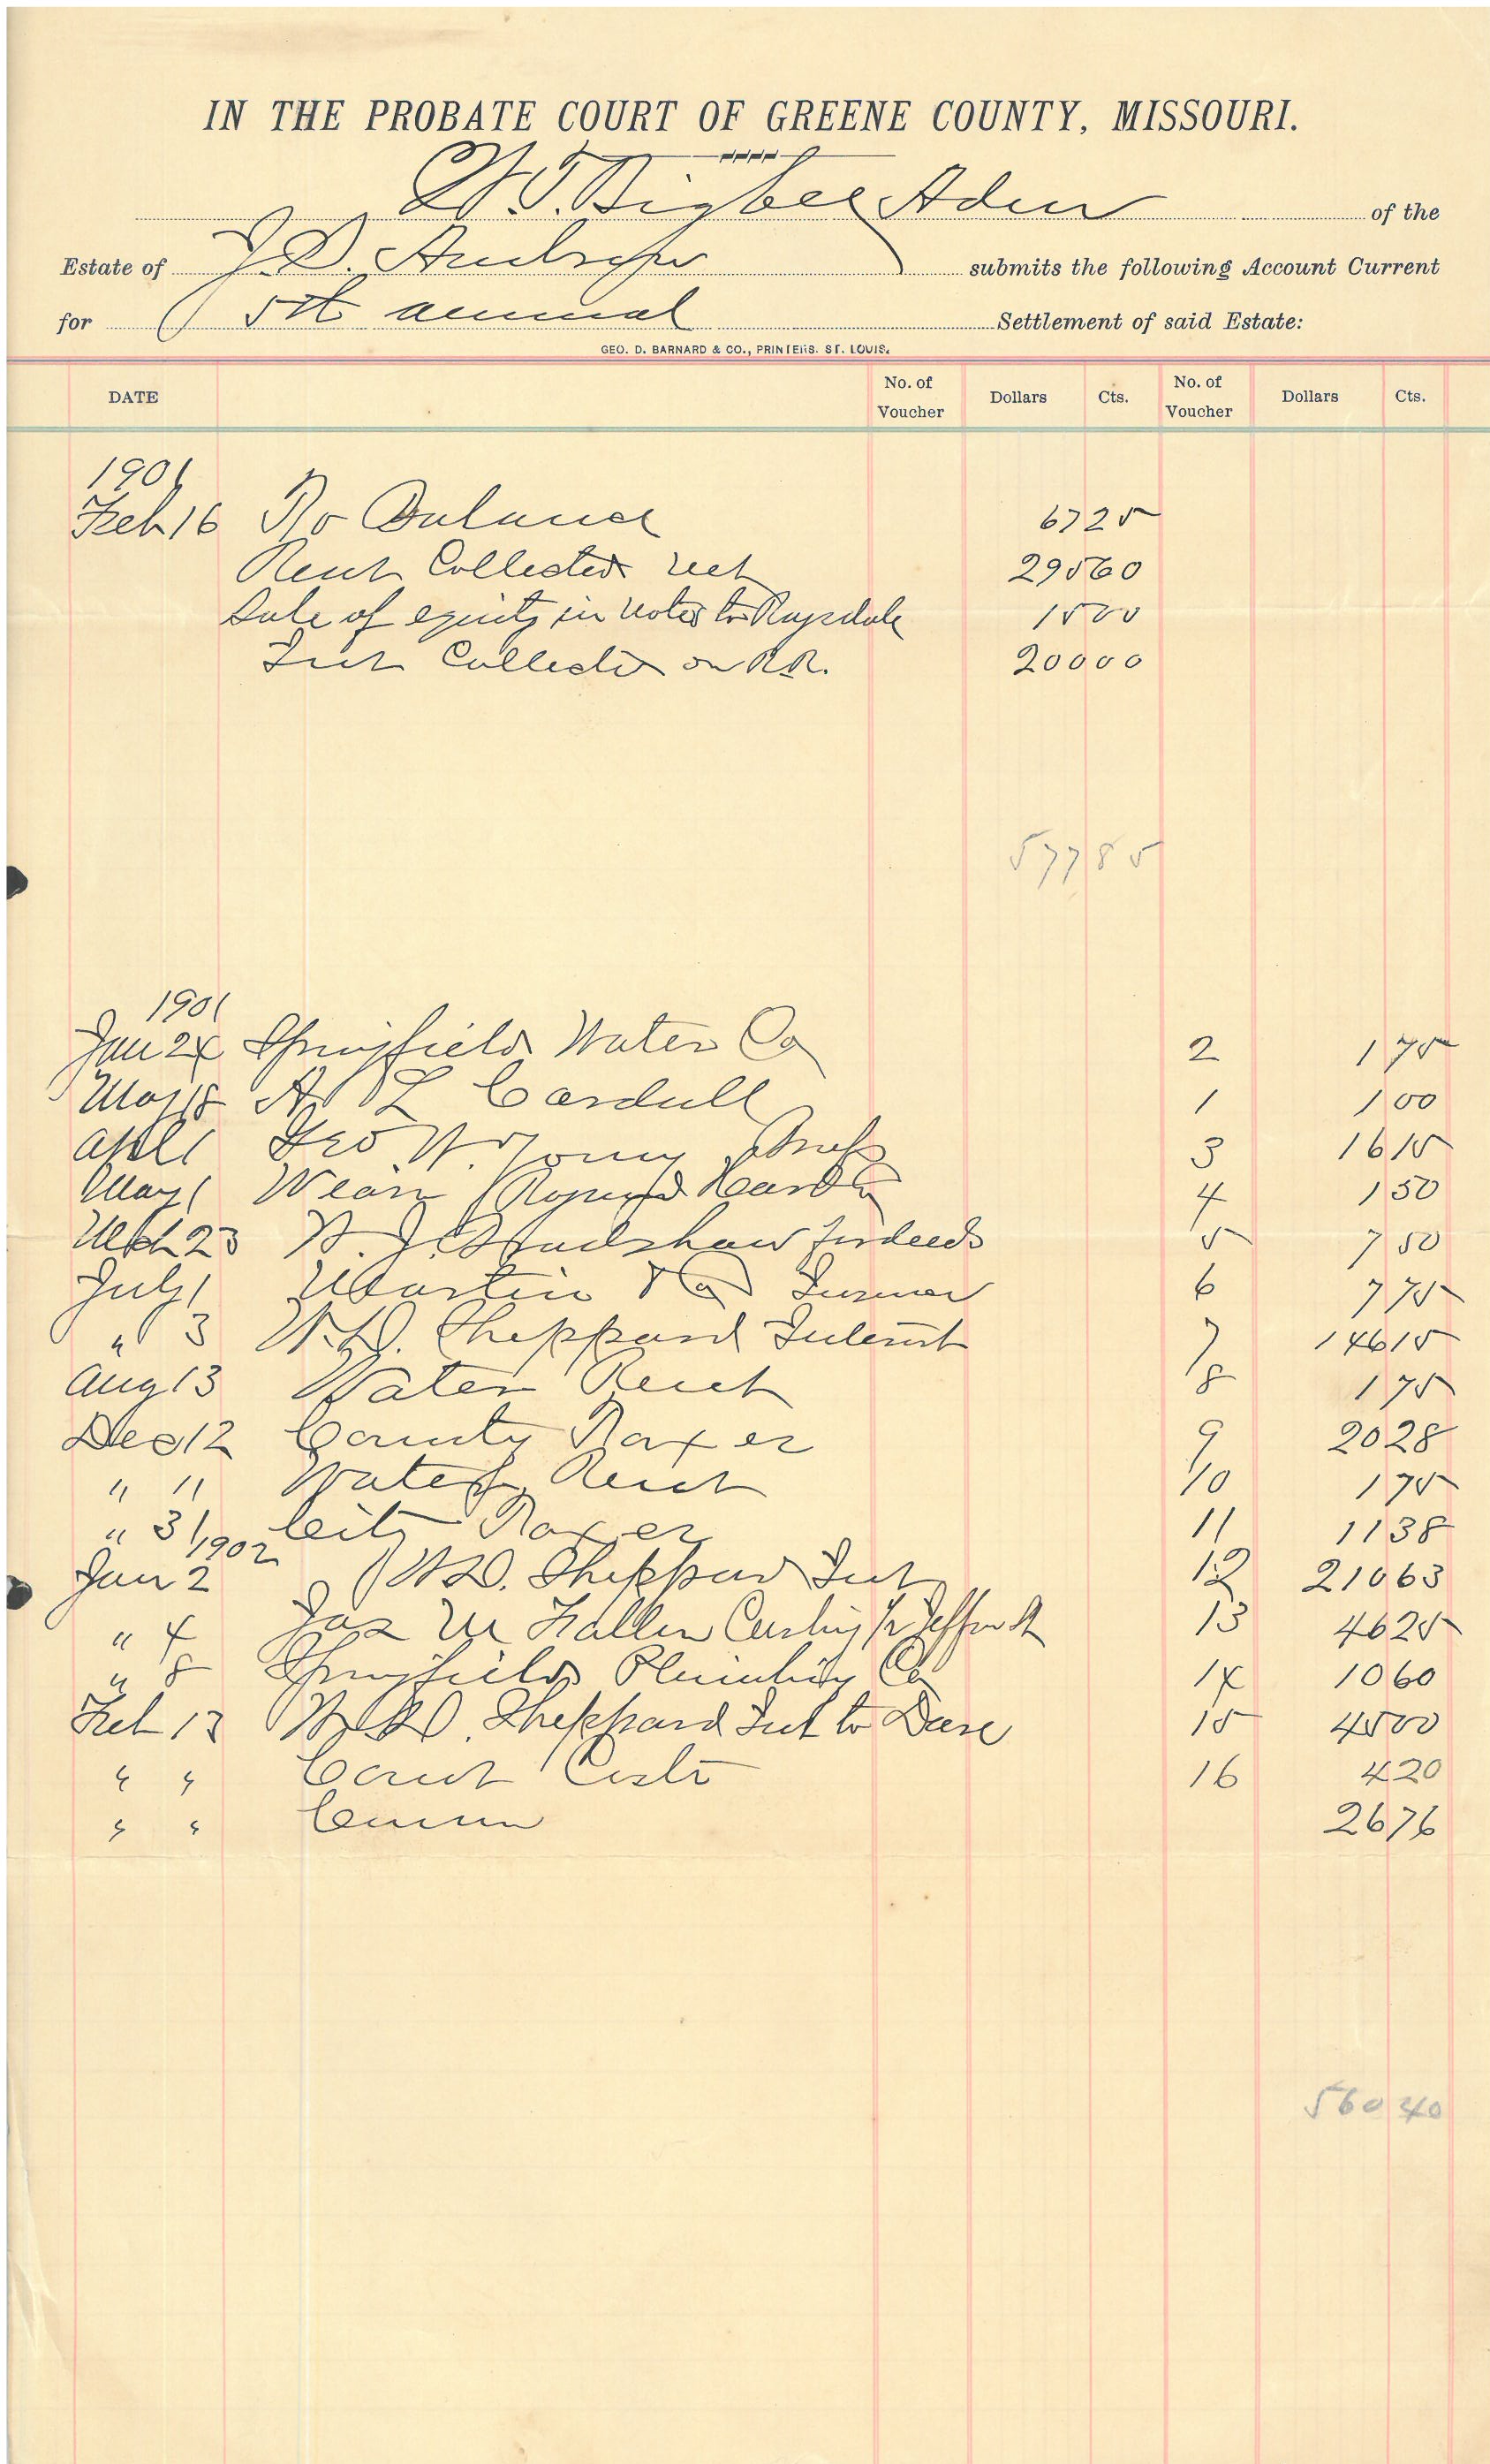 IN THE PROBATE COURT OF GREENE COUNTY, MISSOURI.
W. T. Bigbee Adm of the
Estate of J. D. submits the following Account Current
for 5th annual Settlement of said Estate:
GEO. D. BARNARD & CO., PRINTERS. ST. LOUIS.
DATE No. of Voucher Dollars Cts. No. of Voucher Dollars Cts.
1901
Feb 16 To Balance 67 25
Rent Collected net 295 60
Sale of equity in notes to Ragsdale 15 00
Int Collected on R.R. 200 00
577 85
1901
Jan 24 Springfield Water Co 2 1 75
May 18 A L 1 1 00
Apl 1 Geo W. 3 16 15
May 1 4 1 50
Mch 23 W. J. Bradshaw for deeds 5 7 50
July 1 Martin & Co 6 7 75
" 3 W. D. Sheppard Interest 7 146 15
Aug 13 Water Rent 8 1 75
Dec 12 County Taxes 9 20 28
" " Water Rent 10 1 75
" 31 City Taxes 11 11 38
1902
Jan 2 W.D. Sheppard Int 12 210 63
" 4 Jas M 13 46 25
" 8 Springfield Plumbing Co 14 10 60
Feb 13 W D. Sheppard Int to Date 15 45 00
" " Court Costs 16 4 20
" " Comm 26 76
560 40